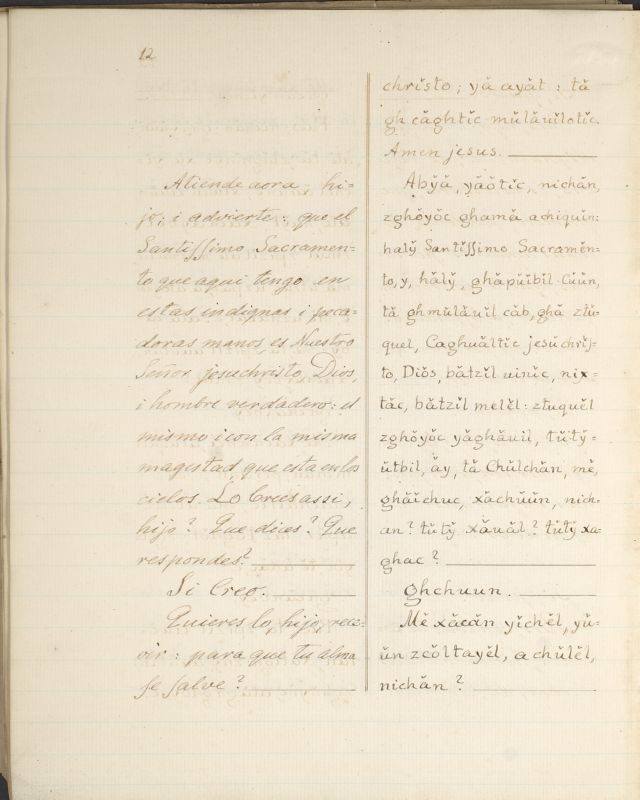 12
Atiende aora hi=
jo; i advierte: que el
Santiſſimo Sacramen=
to que aqui tengo en
estas indignas i peca=
doras manos, es Nuestro
Señor jesuchristo, Dios,
i hombre verdadero: el
mismo i con la misma
magestad que esta en los
cielos. Lo Crees assi,
hijo? Que dices? Que
respondes?
Si Creo.
Quieres lo, hijo, rece=
vir: para que tu alma
se salve?
chrĭsto; yă ayăt: tă
gh căghtĭc mŭlăuĭlotĭc.
Amen jesus.
Aby̆ă, yăŏtĭc, nichăn,
zghŏyŏc ghamă achiquin:
haly̆ Santĭſſimo Sacramĕn=
to, y, hăly̆, ghăpŭĭbĭl Cŭŭn,
tă ghmŭlăuĭl căb, ghă ztŭ=
quel, Caghuăltĭc jesŭchriſ=
to, Diŏs, bătzĭl uinĭc, nix=
tăc, bătzĭl melĕl: ztuquĕl
zghŏyŏc yăghăuil, tŭty̆=
ŭtbil, ăy, tă Chŭlchăn, mĕ,
ghăĭchuc, xăchŭŭn, nich=
an? tŭty̆ xăuăl? tŭty̆ xa=
ghac?
ghchuun.
Mĕ xăcăn yĭchĕl, yŭ=
ŭn zcŏltayĕl, a chŭlĕl,
nichăn?